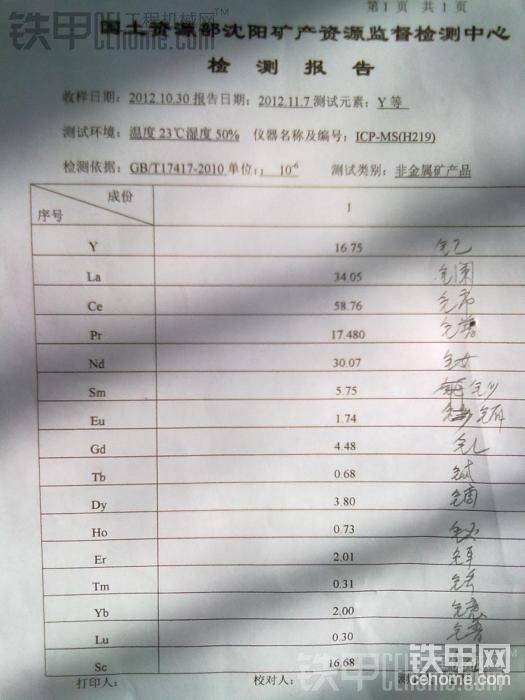 第1页 共1页
铁甲 工程机械网
国土资源部沈阳矿产资源监督检测中心
检 测 报 告
收样日期：2012.10.30 报告日期：2012.11.7 测试元素：Y等
测试环境：温度23℃湿度50% 仪器名称及编号：ICP-MS(H219)
检测依据：GB/T17417-2010 单位:： 10-6 测试类别：非金属矿产品
成份
序号 1
Y 16.75 钇
La 34.05 镧
Ce 58.76 铈
Pr 17.480 镨
Nd 30.07 钕
Sm 5.75 钐
Eu 1.74 铕
Gd 4.48 钆
Tb 0.68 铽
Dy 3.80 镝
Ho 0.73 钬
Er 2.01 铒
Tm 0.31
Yb 2.00 镱
Lu 0.30 镥
Sc 16.68
打印人： 校对人：
铁甲网
cehome.com